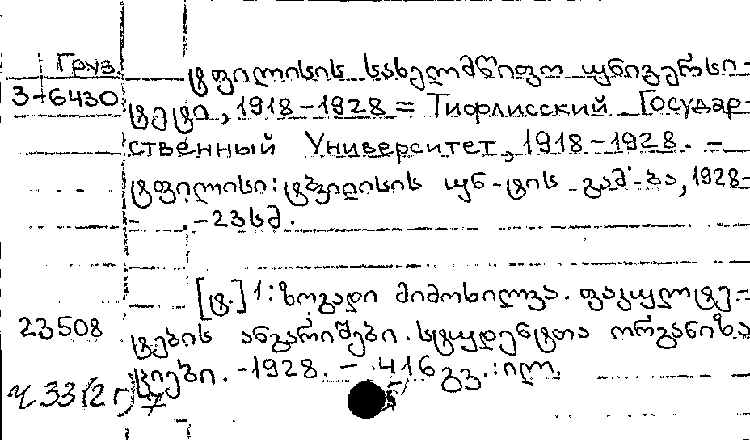 Груз.
ტფილისის სახელმწიფო უნივერსი-
3-6430
ტეტი, 1918-1928 = Тифлисский Государ-
ственный Университет, 1918-1928. -
ტფილისი: ტფილისის უნ-ტის გამ-ბა, 1928-
-23სმ.
[ტ.] 1: ზოგადი მიმოხილვა. ფაკულტე-
23508
ტების ანგარიშები. სტუდენტთა ორგანიზა
ციები. -1928. - 416 გვ.: ილ.
ч 33(2Г)7